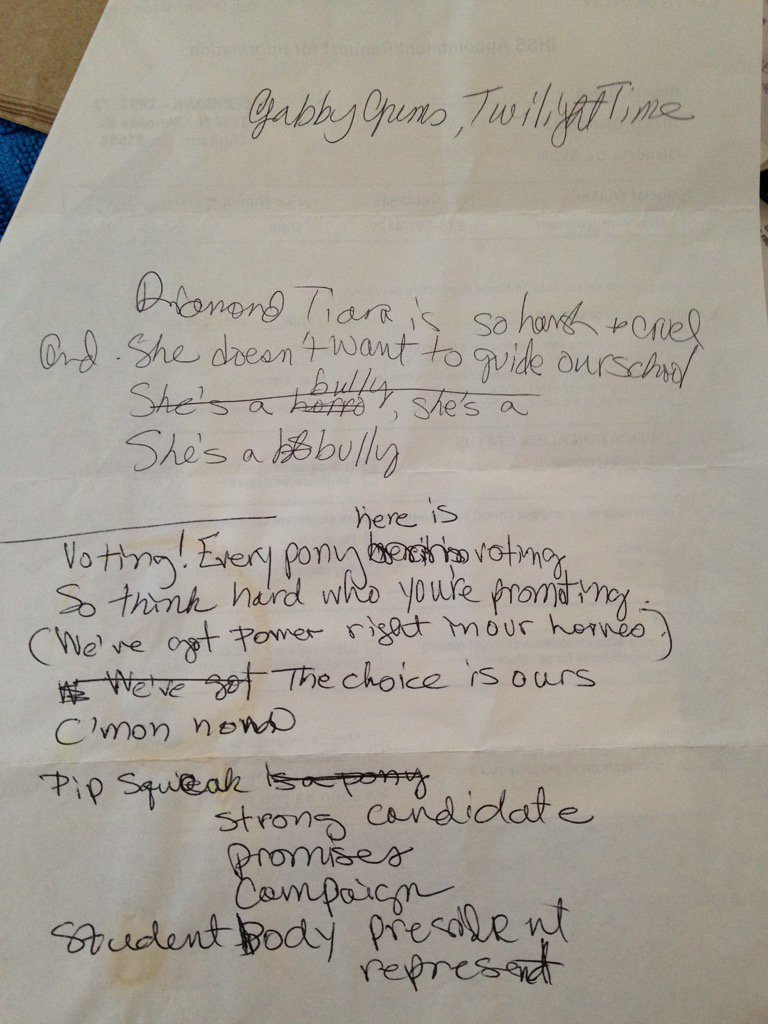 Gabby Gums, Twilight Time
Diamond Tiara is so harsh + cruel
And. She doesn't want to guide our school
bully
She's a horro, she's a
She's a bully
here is
Voting! Every pony voting
So think hard who you're promoting.
(We've got power right in our homes)
We've got The choice is ours
C'mon now
Pip Squeak is a pony
strong candidate
promises
campaign
Student Body president
represent